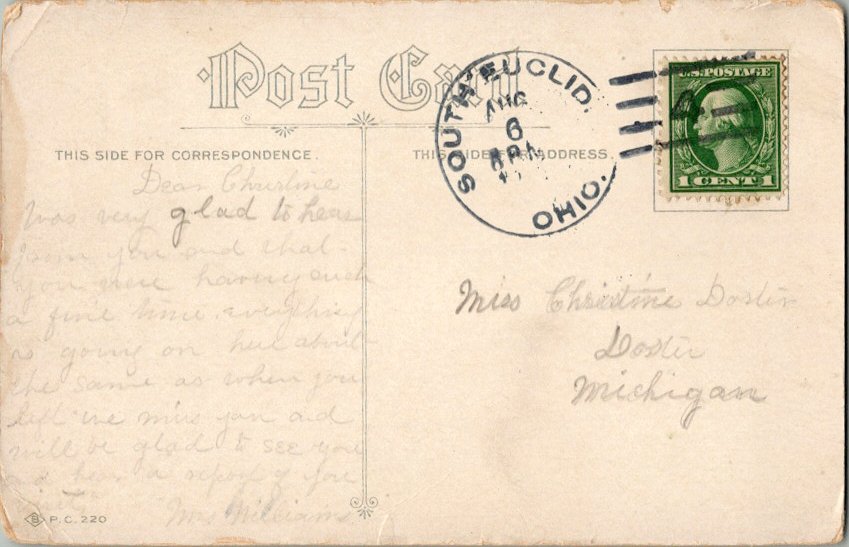 Post Card
SOUTH EUCLID.
AUG
6
OHIO.
U.S. POSTAGE
1 CENT 1
THIS SIDE FOR CORRESPONDENCE.
THIS SIDE FOR ADDRESS.
Dear Christine
Was very glad to hear
from you and that
you were having such
a fine time. everything
is going on here about
the same as when you
left we miss you and
will be glad to see you
and hear a report of your
Mrs Williams
Miss Christine Doster
Doster
Michigan
S P.C. 220